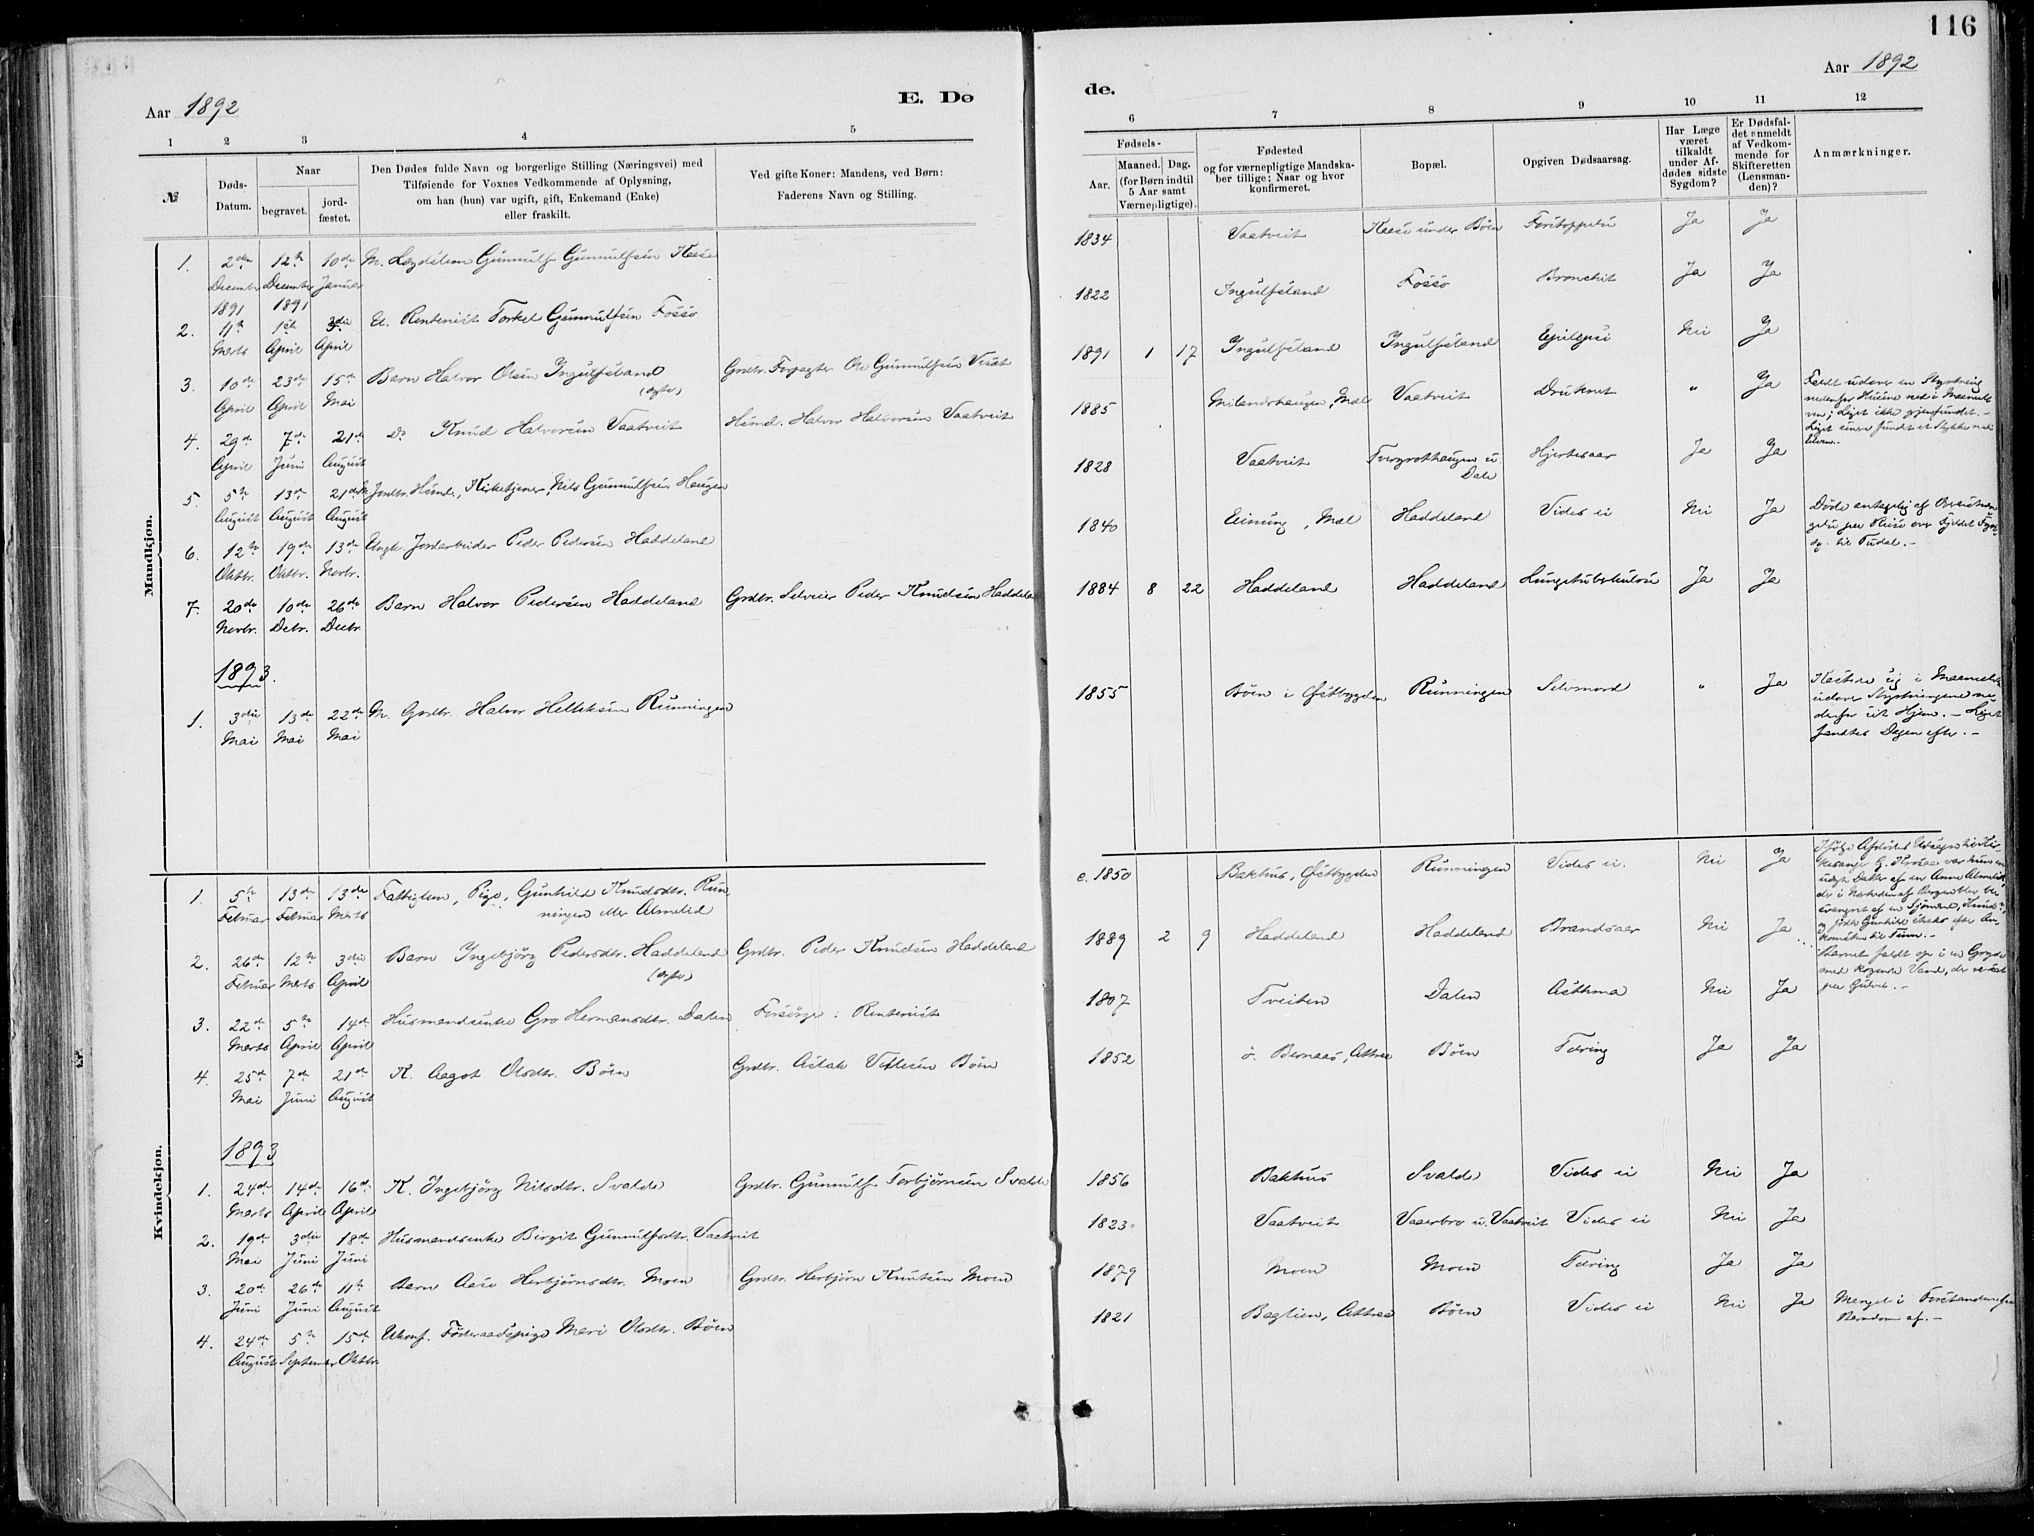 116
Aar 1892
E. Dø
de.
Aar 1892
1 2 3 4 5
6 7 8 9 10 11 12
№
Døds-
Datum.
Naar
begravet.
jord-
fæstet.
Den Dødes fulde Navn og borgerlige Stilling (Næringsvei) med
Tilføiende for Voxnes Vedkommende af Oplysning,
om han (hun) var ugift, gift, Enkemand (Enke)
eller fraskilt.
Ved gifte Koner: Mandens, ved Børn:
Faderens Navn og Stilling.
Fødsels-
Aar.
Maaned. Dag.
(for Børn indtil
5 Aar samt
Værnepligtige).
Fødested
og for værnepligtige Mandska-
ber tillige: Naar og hvor
konfirmeret.
Bopæl.
Opgiven Dødsaarsag.
Har Læge
været
tilkaldt
under Af-
dødes sidste
Sygdom?
Er Dødsfal-
det anmeldt
af Vedkom-
mende for
Skifteretten
(Lensman-
den)?
Anmærkninger.
Mandkjøn.
1. 2den December 1891 12te December 1891 10de Januar M. Lægdslem Gunnulf Gunnulfsen Kaase 1834 Vaatveit Kaase under Bøen Ja Ja
2. 11te Marts 1ste April 3die April E. Rentenist Torkel Gunnulfsen Fossø 1822 Ingulfsland Fossø Bronchit Ja Ja
3. 10de April 23de April 15de Mai Barn Halvor Olsen Ingulfsland (ægte) Grdbr. Forpagter Ole Gunnulfsen 1891 1 17 Ingulfsland Ingulfsland Epilepsi Nei Ja
4. 29de April 7de Juni 21de August Do Knud Halvorsen Vaatveit Husmd. Halvor Halvorsen Vaatveit 1885 Milandshaugen, Mæl Vaatveit Druknet " Ja
Faldt udover en Styrtning
nedenfor Husene ned i Maanelv
ven; Liget ikke gjenfundet. -
5. 5te August 13de August 21de August Jordbr. Husmd., Kirketjener, Nils Gunnulfsen Haugen 1828 Vaatveit Tvergrothaugen u. Dale Hjertesaar Ja Ja
6. 12te Oktbr. 19de Oktbr. 13de Novbr. Ungk. Jordarbeider Peder Pedersen Haddeland 1840 Einung, Mæl Haddeland Vides ei Nei Ja
Døde antagelig af
paa Reise over Fjeldet
til Tudal. -
7. 20de Novbr. 10de Debr. 26de Decbr. Barn Halvor Pedersen Haddeland Grdbr. Selveier Peder Knudsen Haddeland 1884 8 22 Haddeland Haddeland Lungetuberkulose Ja Ja
1893.
1. 3die Mai 13de Mai 22de Mai M. Grdbr. Halvor Helleksen Runningen 1855 Bøen i Østbygden Runningen Selvmord " Ja
Kastede sig i Maanelven
udover Styrtningene ne-
denfor sit Hjem. - Liget
fandtes Dagen efter. -
Kvindekjøn.
1. 5te Februar 13de Februar 13de Marts Fattiglem, Pige, Gunhild Knudsdtr. Run-
ningen eller Almelid c. 1850 Bakhus, Østbygden Runningen Vides ei. Nei Ja
2. 26de Februar 12te Marts 3die April Barn Ingebjørg Pedersdtr. Haddeland (ægte) Grdbr. Peder Knudsen Haddeland 1889 2 9 Haddeland Haddeland Brandsaar Nei Ja
Barnet faldt op i en Gryde
med kogende Vand, der
paa Gulvet. -
3. 22de Marts 5te April 14de April Husmandsenke Gro Hermansdtr. Dalen Forsørge: Rentenist 1807 Tveiten Dalen Asthma Nei Ja
4. 25de Mai 7de Juni 21de August K. Aagot Olsdtr. Bøen Grdbr. Aslak Vetlesen Bøen 1852 ø. Bernaas, Attraa Bøen Tæring Ja Ja
1893
1. 24de Marts 14de April 16de April K. Ingebjørg Nilsdtr. Svalde Grdbr. Gunnulf Torbjørnsen Svalde 1856 Bakhus Svalde Vides ei Nei Ja
2. 19de Mai 3die Juni 18de Juni Husmandsenke Birgit Gunnulfsdtr. Vaatveit 1823 Vaatveit Vaaerbro u. Vaatveit Vides ei Nei Ja
3. 20de Juni 26de Juni 11te August Barn Aase Herbjørnsdtr. Moen Grdbr. Herbjørn Knutsen Moen 1879 Moen Moen Tæring Ja Ja
4. 24de August 5te September 15de Oktbr. Ukonf. Føderaadspige Mari Olsdtr. Bøen 1821 Bøen Vides ei Nei Ja
Mangel i Forstanden fra
Barndom af. -